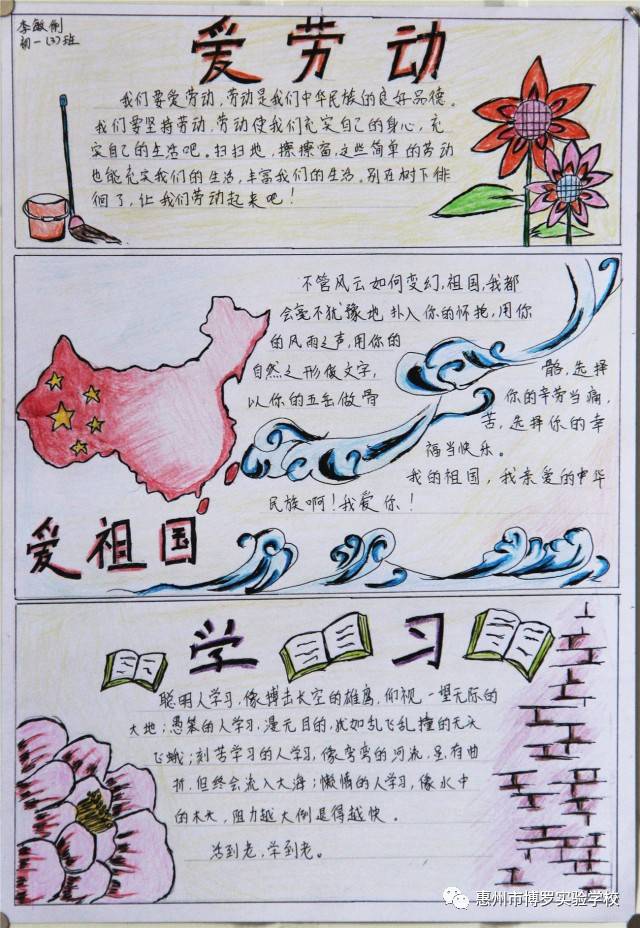 李敏俐
初一(3)班
爱劳动
我们要爱劳动,劳动是我们中华民族的良好品德。
我们要坚持劳动,劳动使我们充实自己的身心,充
实自己的生活吧。扫扫地,擦擦窗,这些简单的劳动
也能充实我们的生活,丰富我们的生活。别在树下徘
徊了,让我们劳动起来吧!
不管风云如何变幻,祖国,我都
会毫不犹豫地扑入你的怀抱,用你
的风雨之声,用你的
自然之形做文字,
以你的五岳做骨
骼,选择
你的辛劳当痛,
苦,选择你的幸
福当快乐。
我的祖国,我亲爱的中华
民族啊!我爱你!
爱祖国
学习
聪明人学习,像搏击长空的雄鹰,仰视一望无际的
大地;愚笨的人学习,漫无目的,犹如乱飞乱撞的无头
飞蛾;刻苦学习的人学习,像弯弯的河流,虽有曲
折,但终会流入大海;懒惰的人学习,像水中
的木头,阻力越大倒是得越快。
活到老,学到老。
惠州市博罗实验学校